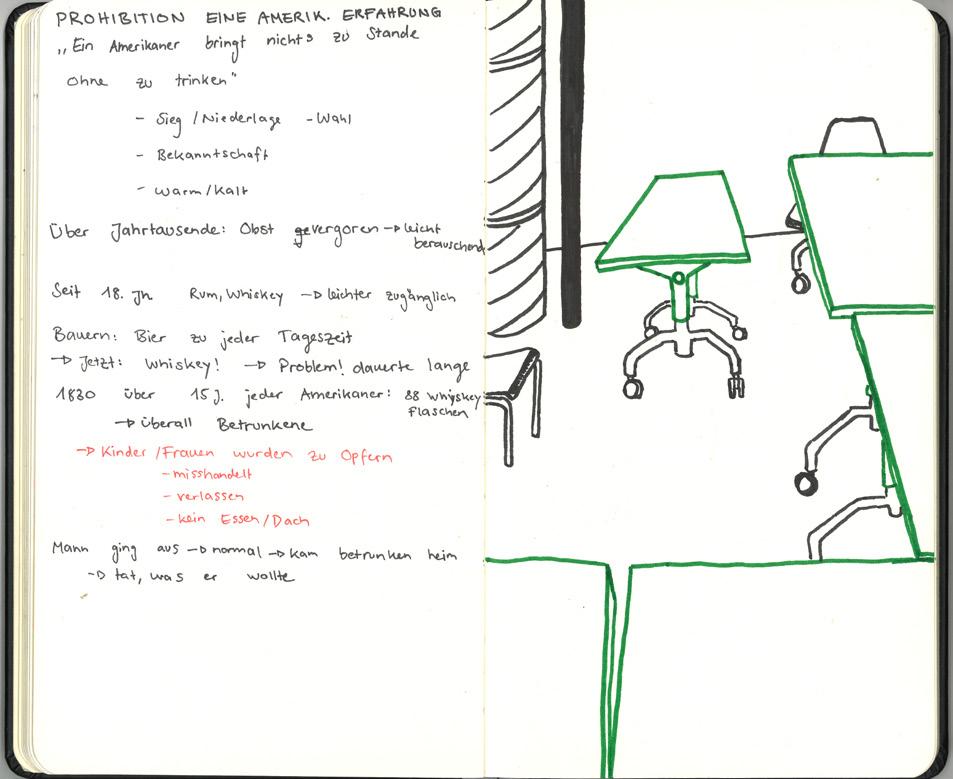 PROHIBITION EINE AMERIK. ERFAHRUNG
„Ein Amerikaner bringt nichts zu Stande
ohne zu trinken"
- Sieg / Niederlage - Wahl
- Bekanntschaft
- Warm/Kalt
Über Jahrtausende: Obst gevergoren → leicht
berauschend
Seit 18. Jh Rum, Whiskey → leichter zugänglich
Bauern: Bier zu jeder Tageszeit
→ Jetzt: Whiskey! → Problem! dauerte lange
1830 über 15 J. jeder Amerikaner: 88 Whiskey
Flaschen
→ überall Betrunkene
→ Kinder / Frauen wurden zu Opfern
- misshandelt
- verlassen
- kein Essen/Dach
Mann ging aus → normal → kam betrunken heim
→ tat, was er wollte